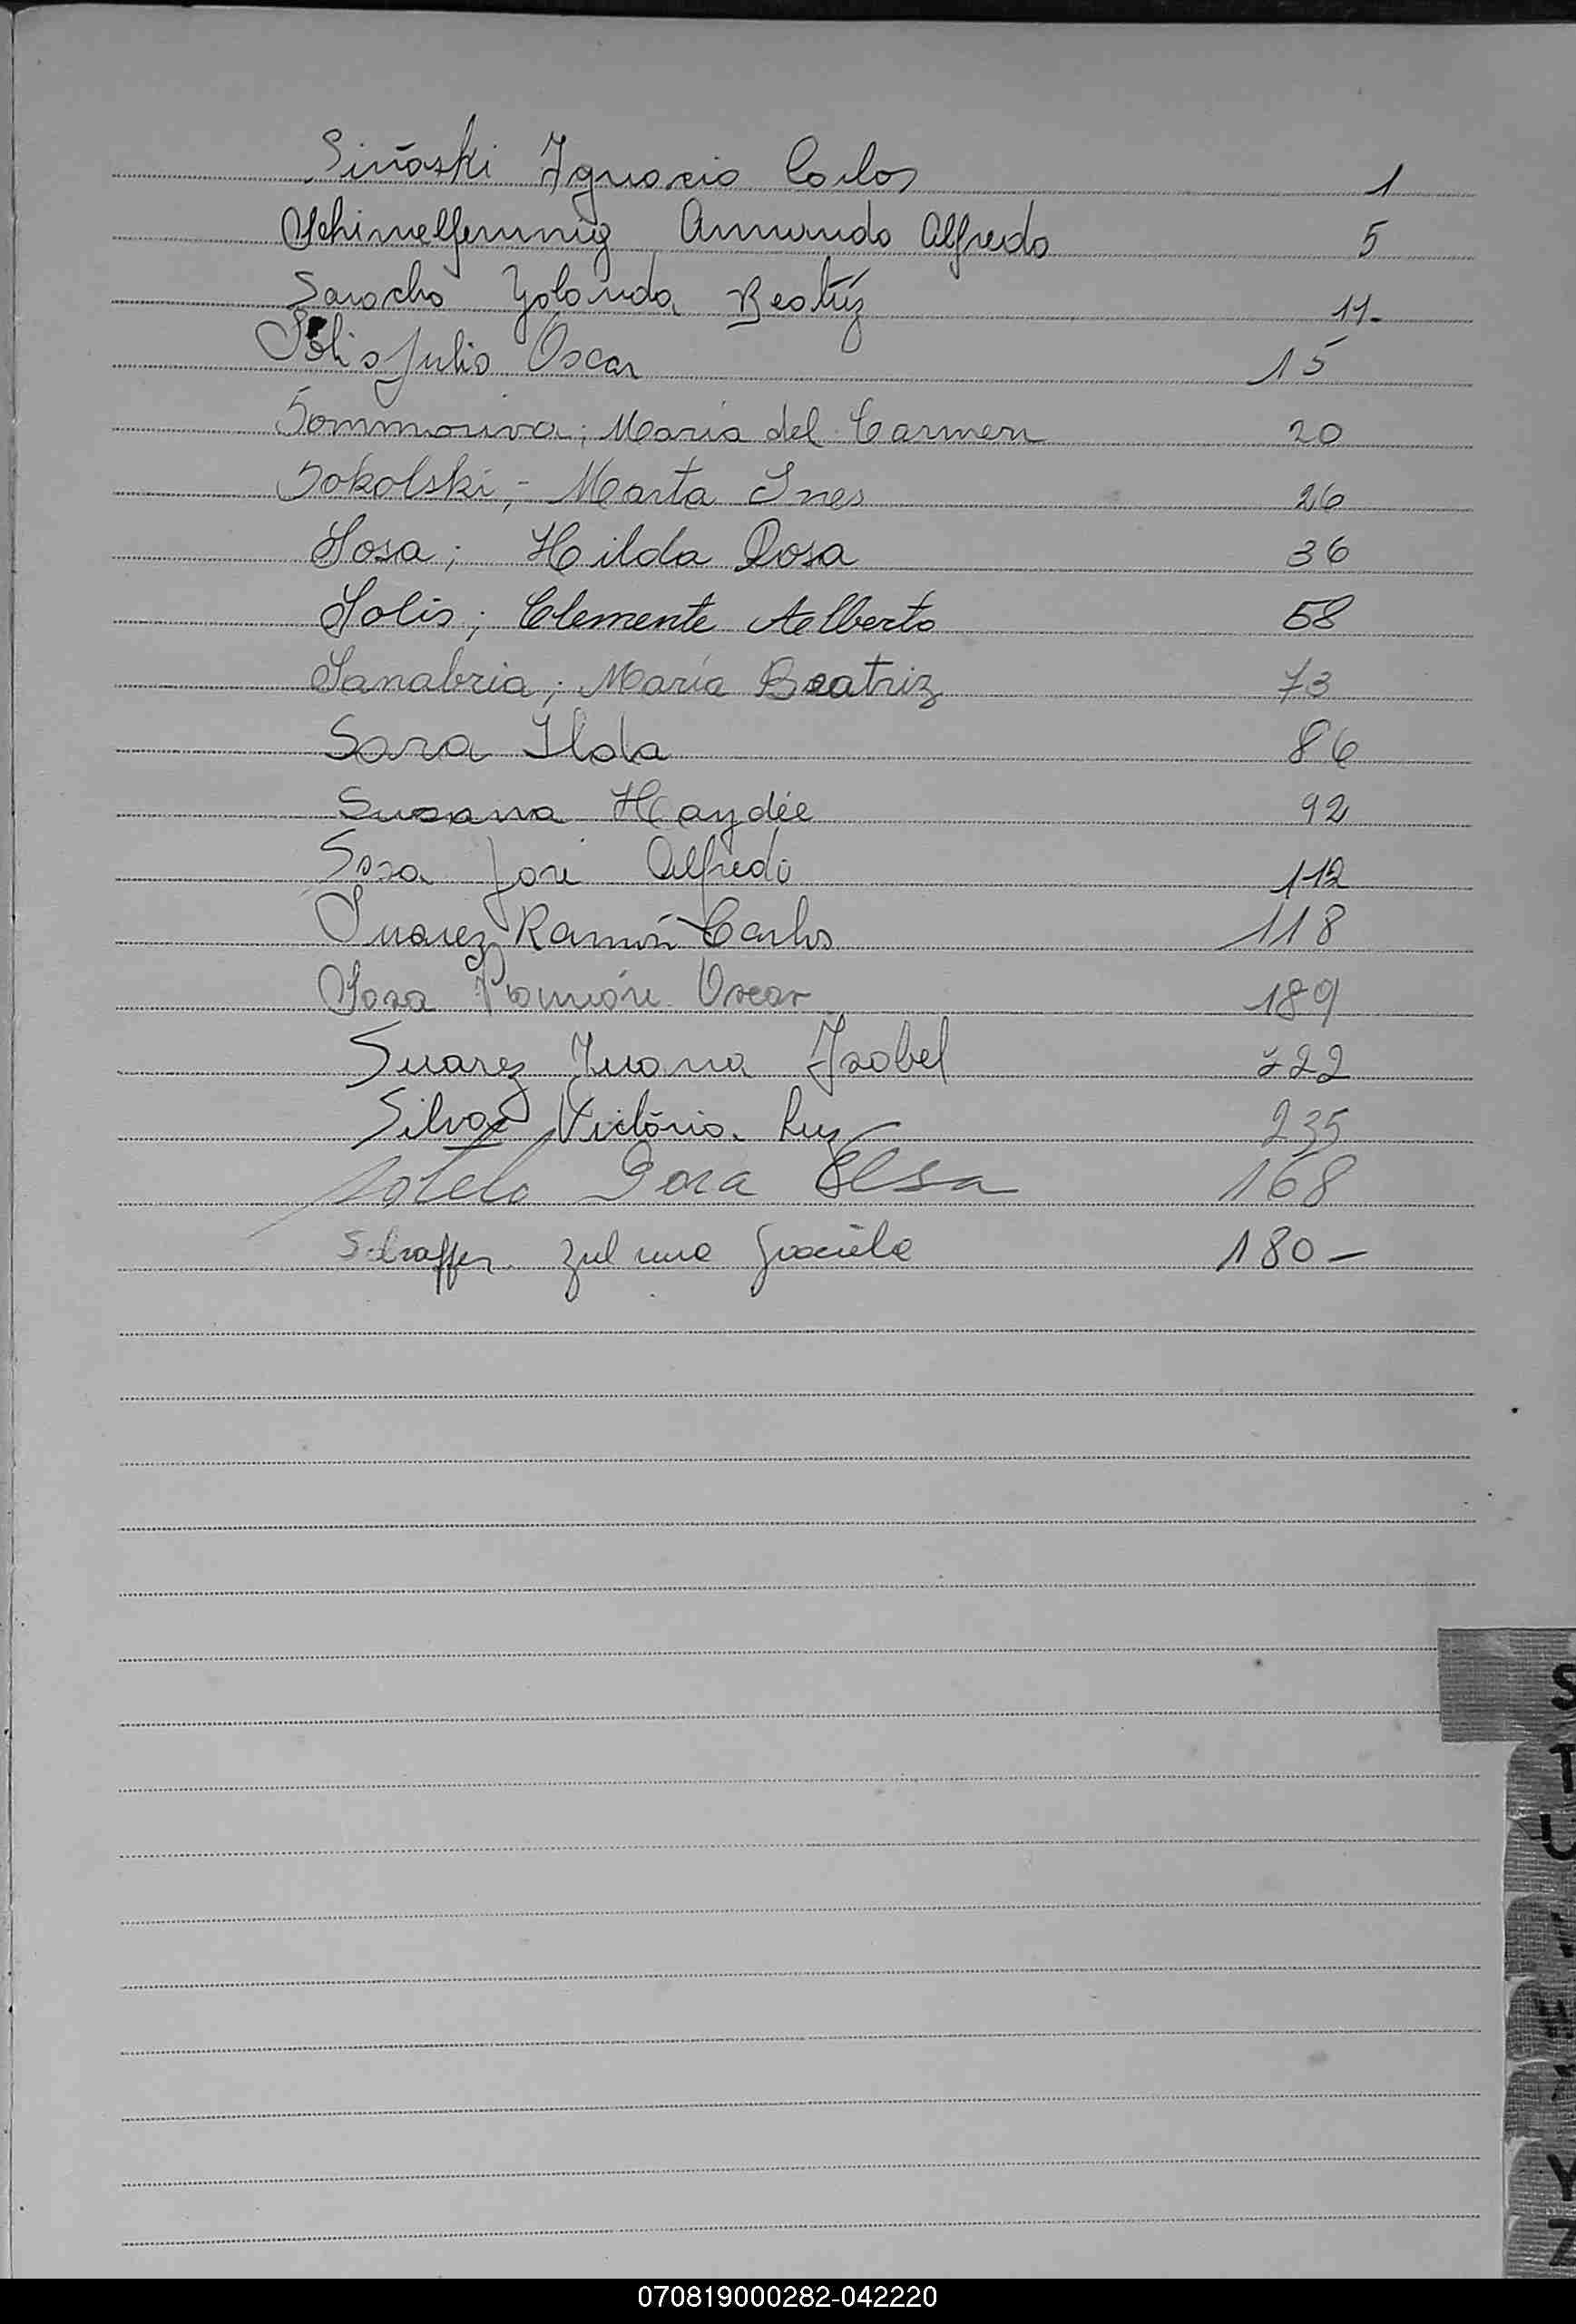 Siñaski Ignacio Carlos 1
Schimelfennig Armando Alfredo 5
Saracho Yolanda Beatríz 11-
Solis Julio Oscar 15
Sommariva; María del Carmen 20
Sokolski; Marta Ines 26
Sosa; Hilda Rosa 36
Solis; Clemente Alberto 58
Sanabria; María Beatriz 73
Sara Ilda 86
Susana Haydée 92
Sosa José Alfredo 112
Suarez Ramón Carlos 118
Sosa Ramón Oscar 189
Suarez Juana Isabel 222
Silva Victória Luz 235
Sotelo Dora Elsa 168
Schaffer Zulma Graciela 180-
S
T
U
Y
Z
070819000282-042220